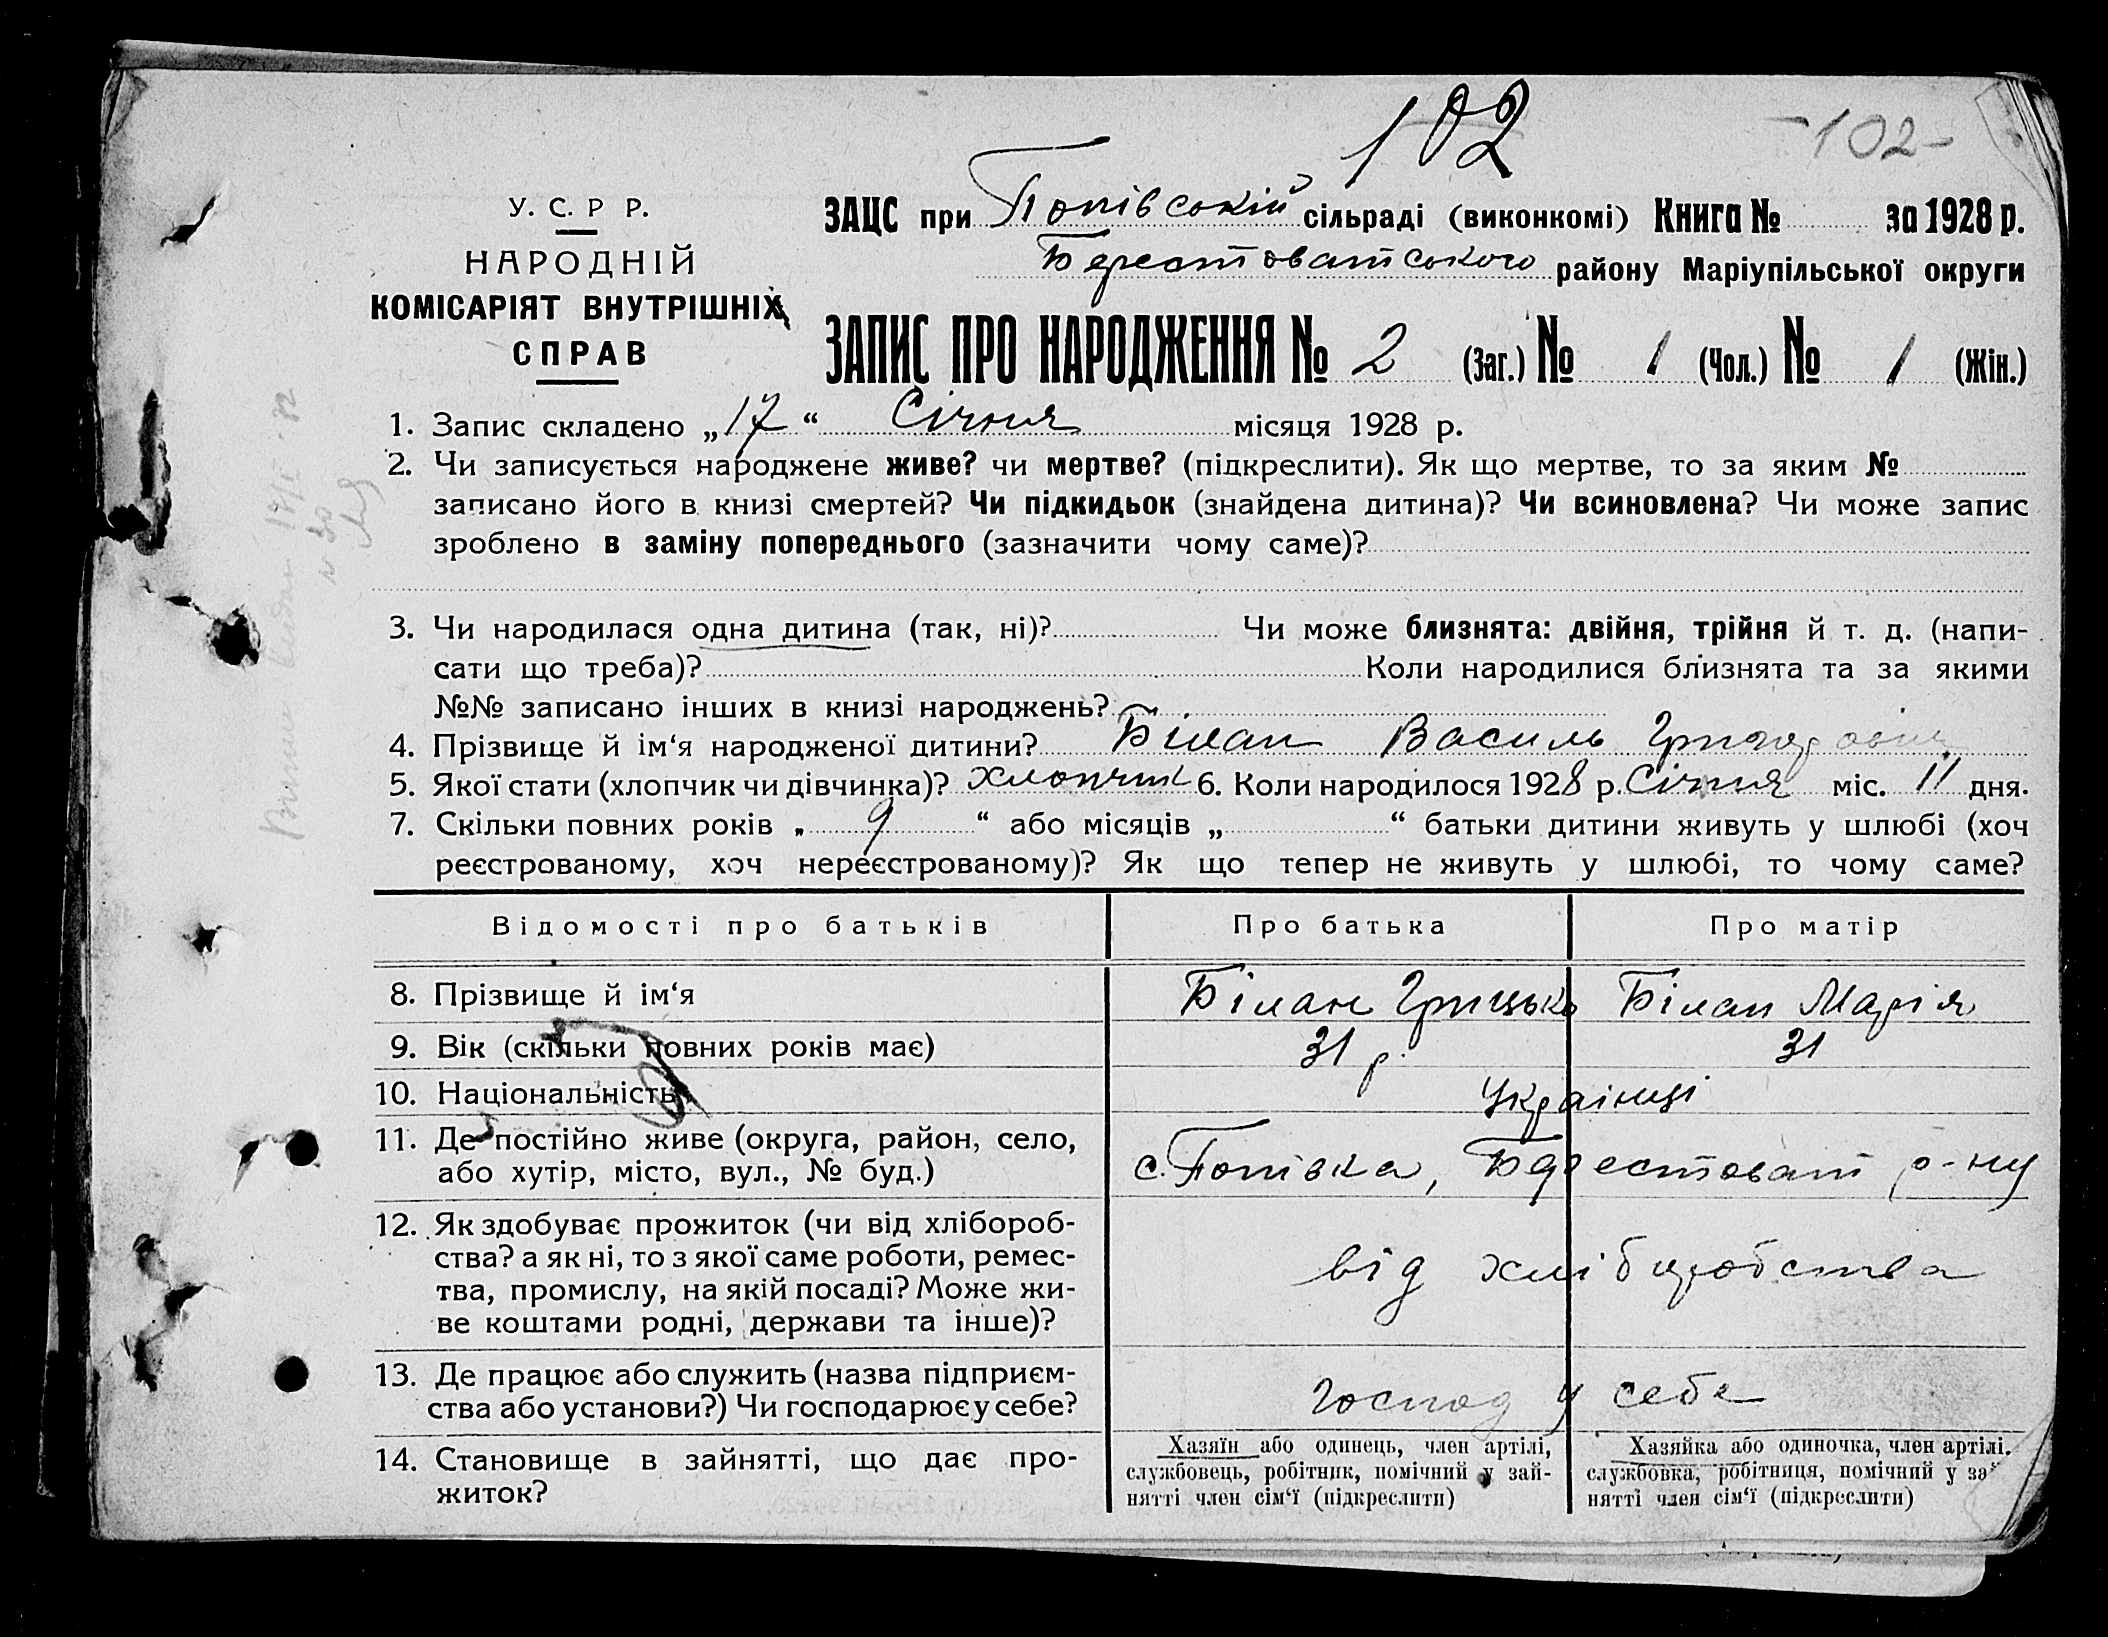 102
-102-
У. С. Р Р.
НАРОДНІЙ
КОМІСАРІЯТ ВНУТРІШНІХ
СПРАВ
ЗАЦС при Попівській сільраді (виконкомі) Книга № за 1928 р.
Берестоватського району Маріупільської округи
ЗАПИС ПРО НАРОДЖЕННЯ № 2 (Заг.) № 1 (Чол.) № 1 (Жін.)
1. Запис складено „17“ Січня місяця 1928 р.
2. Чи записується народжене живе? чи мертве? (підкреслити). Як що мертве, то за яким №
записано його в книзі смертей? Чи підкидьок (знайдена дитина)? Чи всиновлена? Чи може запис
зроблено в заміну попереднього (зазначити чому саме)?
3. Чи народилася одна дитина (так, ні)? Чи може близнята: двійня, трійня й т. д. (напи-
сати що треба)? Коли народилися близнята та за якими
№№ записано інших в книзі народжень?
4. Прізвище й ім‘я народженої дитини? Білан Василь
5. Якої стати (хлопчик чи дівчинка)? Хлопчик 6. Коли народилося 1928 р. Січня міс. 11 дня.
7. Скільки повних років „ 9 “ або місяців „ “ батьки дитини живуть у шлюбі (хоч
реєстрованому, хоч нереєстрованому)? Як що тепер не живуть у шлюбі, то чому саме?
Відомості про батьків Про батька Про матір
8. Прізвище й ім‘я Білан Грицько Білан Марія
9. Вік (скільки повних років має) 31 р. 31
10. Національність Українці
11. Де постійно живе (округа, район, село,
або хутір, місто, вул., № буд.) с. Попівка, Берестоват р-ну
12. Як здобуває прожиток (чи від хлібороб-
ства? а як ні, то з якої саме роботи, ремес-
тва, промислу, на якій посаді? Може жи-
ве коштами родні, держави та інше)?
від хліборобства
13. Де працює або служить (назва підприєм-
ства або установи?) Чи господарює у себе?
Господ у себе
14. Становище в зайнятті, що дає про-
житок?
Хазяїн або одинець, член артілі,
службовець, робітник, помічний у зай-
нятті член сім‘ї (підкреслити)
Хазяйка або одиночка, член артілі.
службовка, робітниця, помічний у за
нятті член сім‘ї (підкреслити)